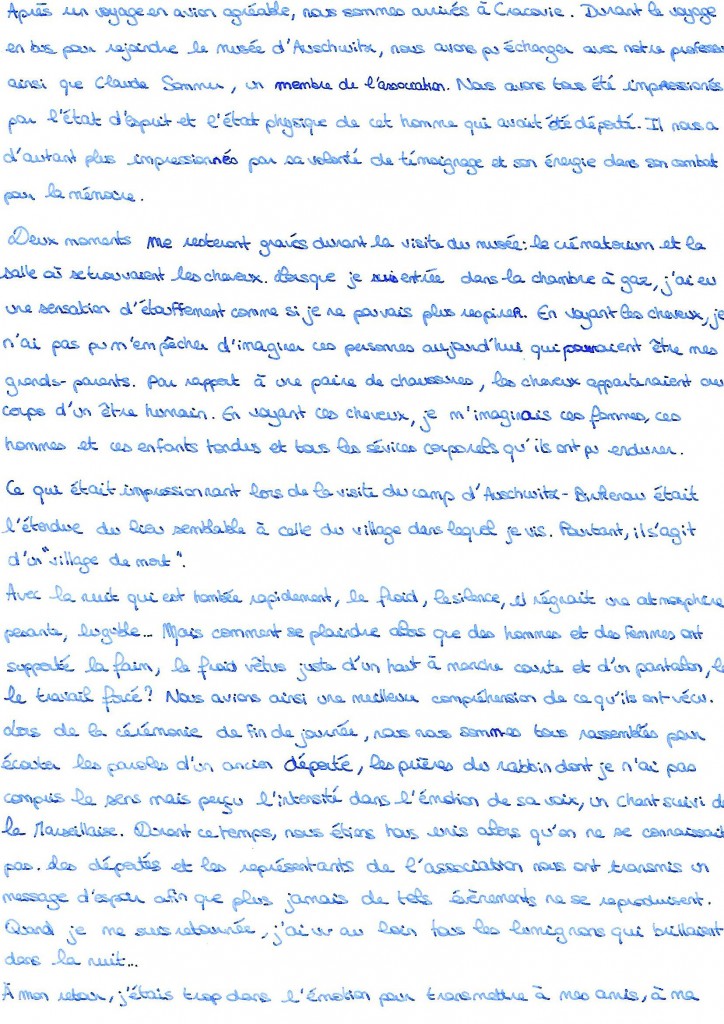 Après un voyage en avion agréable, nous sommes arrivés à Cracovie. Durant le voyage
en bus pour rejoindre le musée d'Auschwitz, nous avons pu échanger avec notre professeur
ainsi que Claude Sommer, un membre de l'association. Nous avons tous été impressionnés
par l'état d'esprit et l'état physique de cet homme qui avait été déporté. Il nous a
d'autant plus impressionnés par sa volonté de témoignage et son énergie dans son combat
pour la mémoire.
Deux moments me resteront gravés durant la visite du musée : le crématorium et la
salle où se trouvaient les cheveux. Lorsque je suis entrée dans la chambre à gaz, j'ai eu
une sensation d'étouffement comme si je ne pouvais plus respirer. En voyant les cheveux, je
n'ai pas pu m'empêcher d'imaginer ces personnes aujourd'hui qui pourraient être mes
grands-parents. Par rapport à une paire de chaussures, les cheveux appartenaient au
corps d'un être humain. En voyant ces cheveux, je m'imaginais ces femmes, ces
hommes et ces enfants tondus et tous les sévices corporels qu'ils ont pu endurer.
Ce qui était impressionnant lors de la visite du camp d'Auschwitz-Birkenau était
l'étendue du lieu semblable à celle du village dans lequel je vis. Pourtant, il s'agit
d'un "village de mort".
Avec la nuit qui est tombée rapidement, le froid, le silence, il régnait une atmosphère
pesante, lugubre... Mais comment se plaindre alors que des hommes et des femmes ont
supporté la faim, le froid vêtus juste d'un haut à manche courte et d'un pantalon,
le travail forcé ? Nous avions ainsi une meilleure compréhension de ce qu'ils ont vécu.
Lors de la cérémonie de fin de journée, nous nous sommes tous rassemblés pour
écouter les paroles d'un ancien déporté, les prières du rabbin dont je n'ai pas
compris le sens mais perçu l'intensité dans l'émotion de sa voix, un chant suivi de
la Marseillaise. Durant ce temps, nous étions tous unis alors qu'on ne se connaissait
pas. Les déportés et les représentants de l'association nous ont transmis un
message d'espoir afin que plus jamais de tels évènements ne se reproduisent.
Quand je me suis retournée, j'ai vu au loin tous les lumignons qui brillaient
dans la nuit...
À mon retour, j'étais trop dans l'émotion pour transmettre à mes amis, à ma